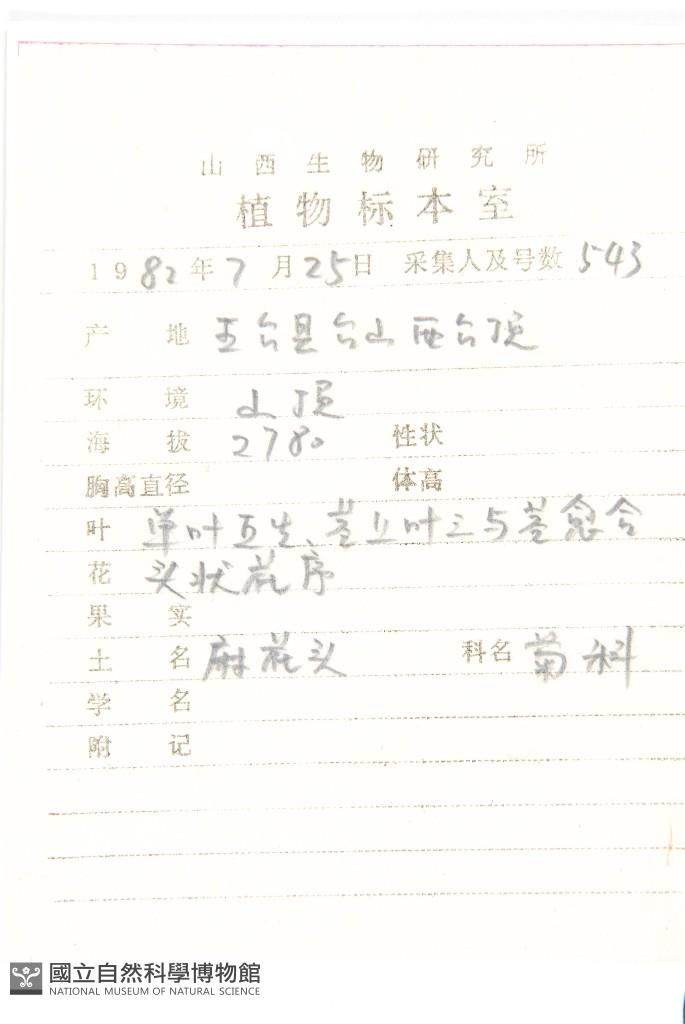 山西生物研究所
植物标本室
1982年7月25日 采集人及号数 543
产地 五台县台山西台顶
环境 山顶
海拔 2780 性状
胸高直径 体高
叶 单叶互生、茎上叶与茎愈合
花 头状花序
果实
土名 麻花头 科名 菊科
学名
附记
國立自然科學博物館
NATIONAL MUSEUM OF NATURAL SCIENCE